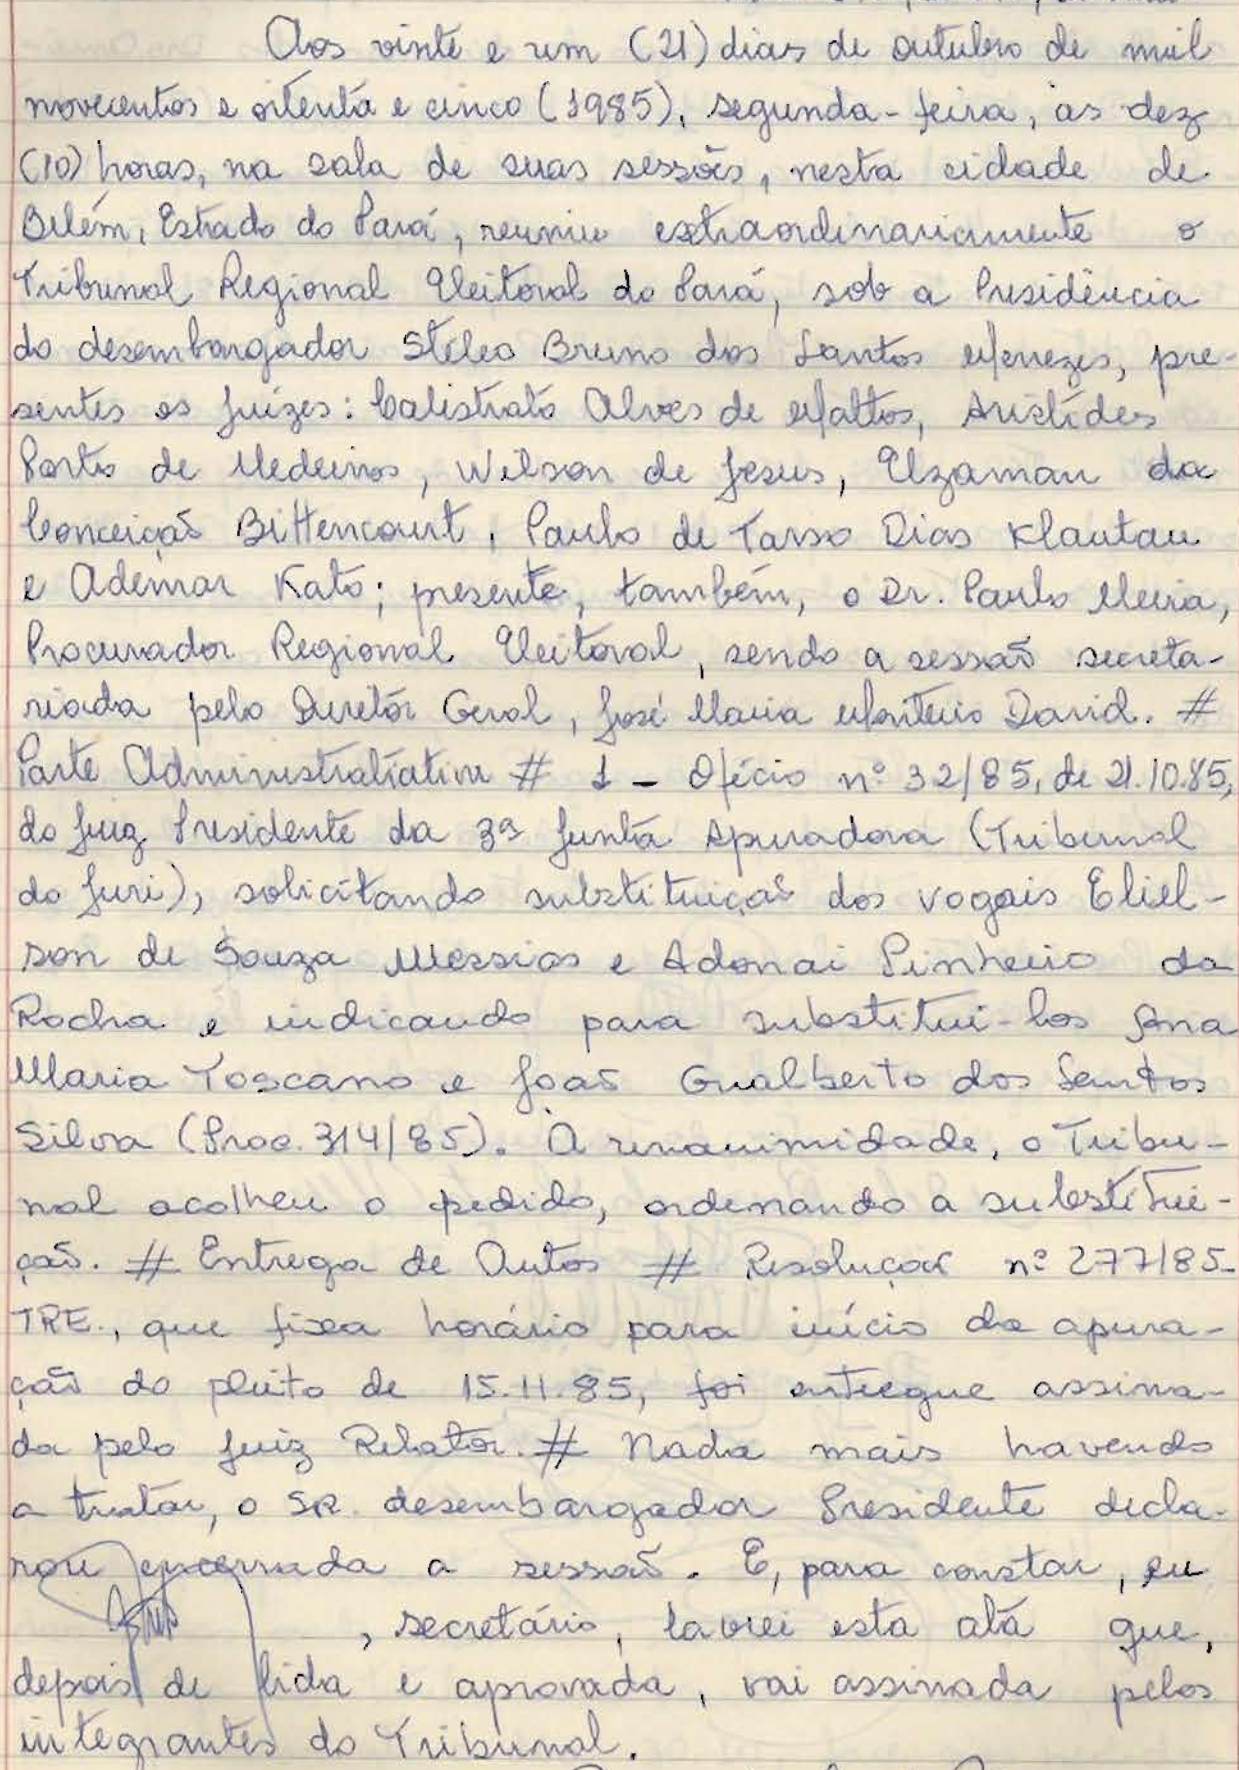 Aos vinte e um (21) dias de outubro de mil
novecentos e oitenta e cinco (1985), segunda-feira, às dez
(10) horas, na sala de suas sessões, nesta cidade de
Belém, Estado do Pará, reuniu extraordinariamente o
Tribunal Regional Eleitoral do Pará, sob a Presidência
do desembargador Stéleo Bruno dos Santos Menezes, pre-
sentes os juízes: Calistrato Alves de Mattos, Aristides
Porto de Medeiros, Wilson de Jesus, Elzaman da
Conceição Bittencourt, Paulo de Tarso Dias Klautau
e Ademar Kato; presente, também, o Dr. Paulo Meira,
Procurador Regional Eleitoral, sendo a sessão secreta-
riada pelo Diretor Geral, José Maria Monteiro David. #
Parte Administratiativa # 1 - Ofício nº 32/85, de 21.10.85,
do Juiz Presidente da 3ª Junta Apuradora (Tribunal
do Juri), solicitando substituição dos vogais Eliel-
son de Souza Messias e Adonai Pinheiro da
Rocha e indicando para substitui-los Ana
Maria Toscano e João Gualberto dos Santos
Silva (Proc. 314/85). À unanimidade, o Tribu-
nal acolheu o pedido, ordenando a substitui-
ção. # Entrega de Autos # Resolução nº 277/85-
TRE., que fixa horário para início da apura-
ção do pleito de 15.11.85, foi entregue assina-
da pelo Juiz Relator. # Nada mais havendo
a tratar, o SR. desembargador Presidente decla-
rou encerrada a sessão. E, para constar, eu
, secretário, lavrei esta ata que,
depois de lida e aprovada, vai assinada pelos
integrantes do Tribunal.